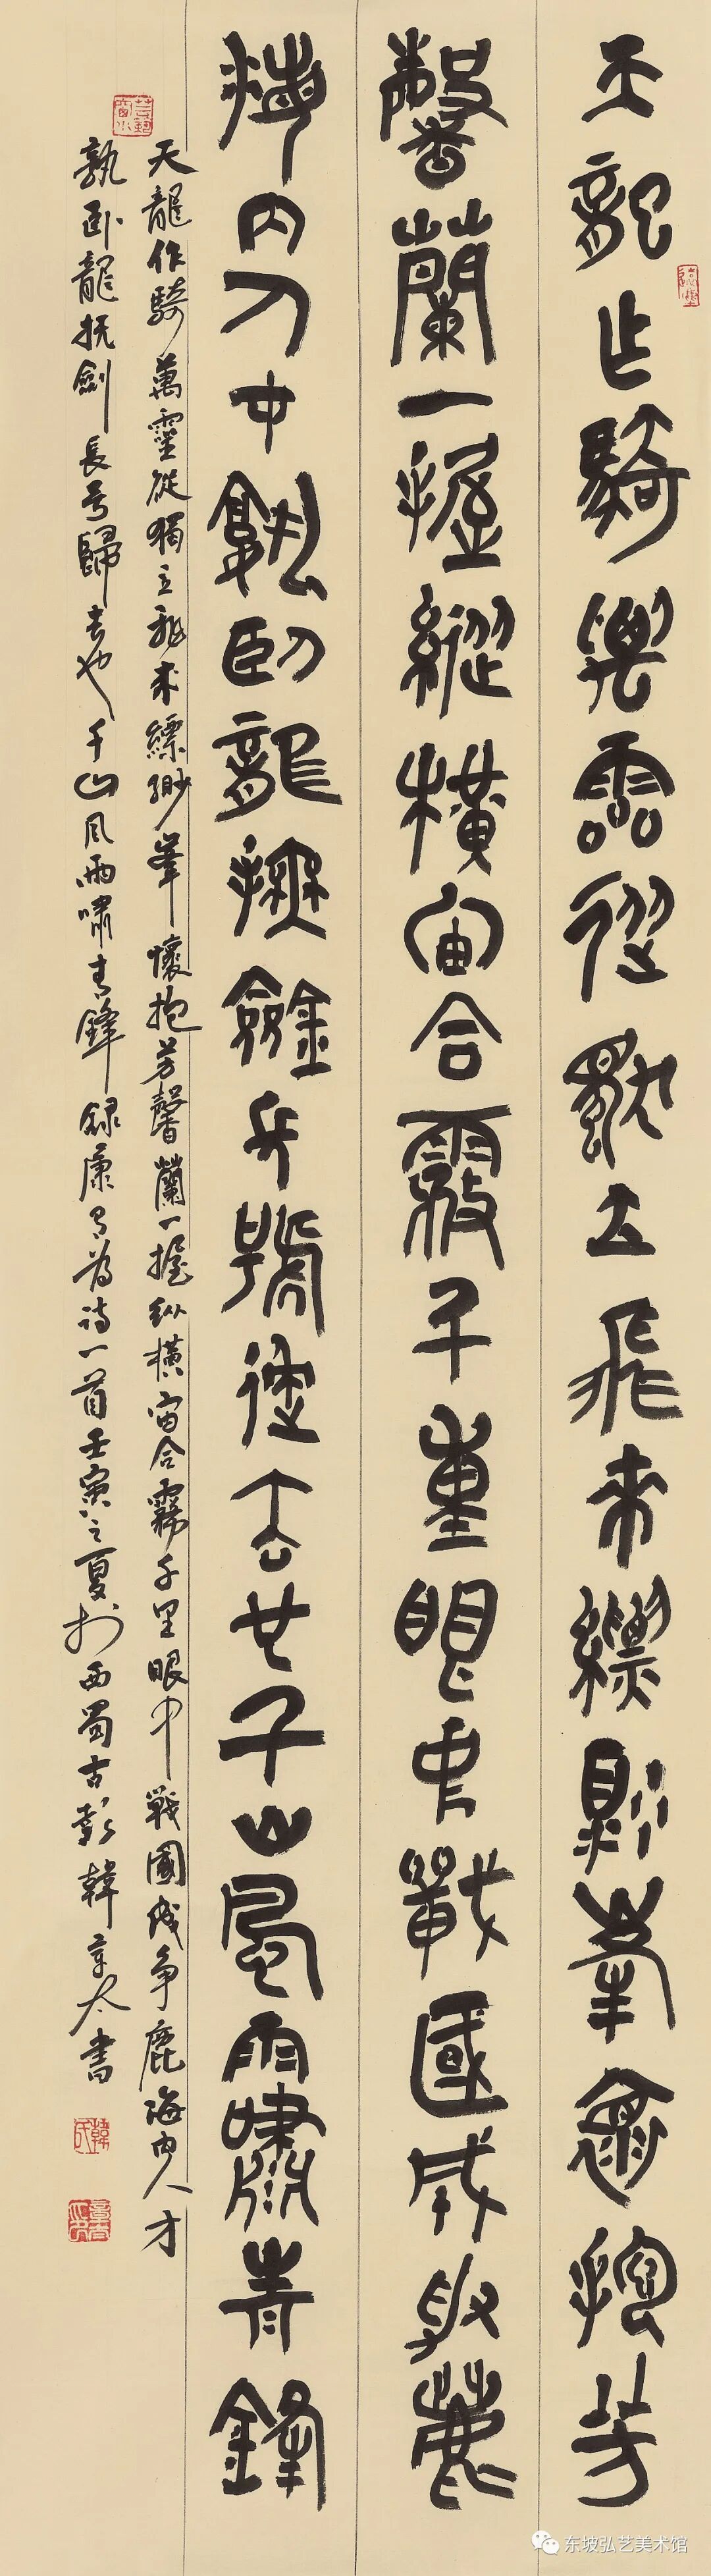 天龍乍騎萬靈從獨立飛來縹緲峯懷抱芳
馨蘭一握縱橫宙合霧千重眼中戰國成爭鹿
海內人才孰臥龍撫劍長號歸去也千山風雨嘯青鋒
天龍作騎萬靈從獨立飛來縹緲峯懷抱芳馨蘭一握纵橫宙合霧千里眼中戰國成争鹿海内人才
孰卧龍抚劍長号歸去也千山風雨嘯青鋒錄康有为诗一首壬寅之夏於西蜀古彭韓書
东坡弘艺美术馆